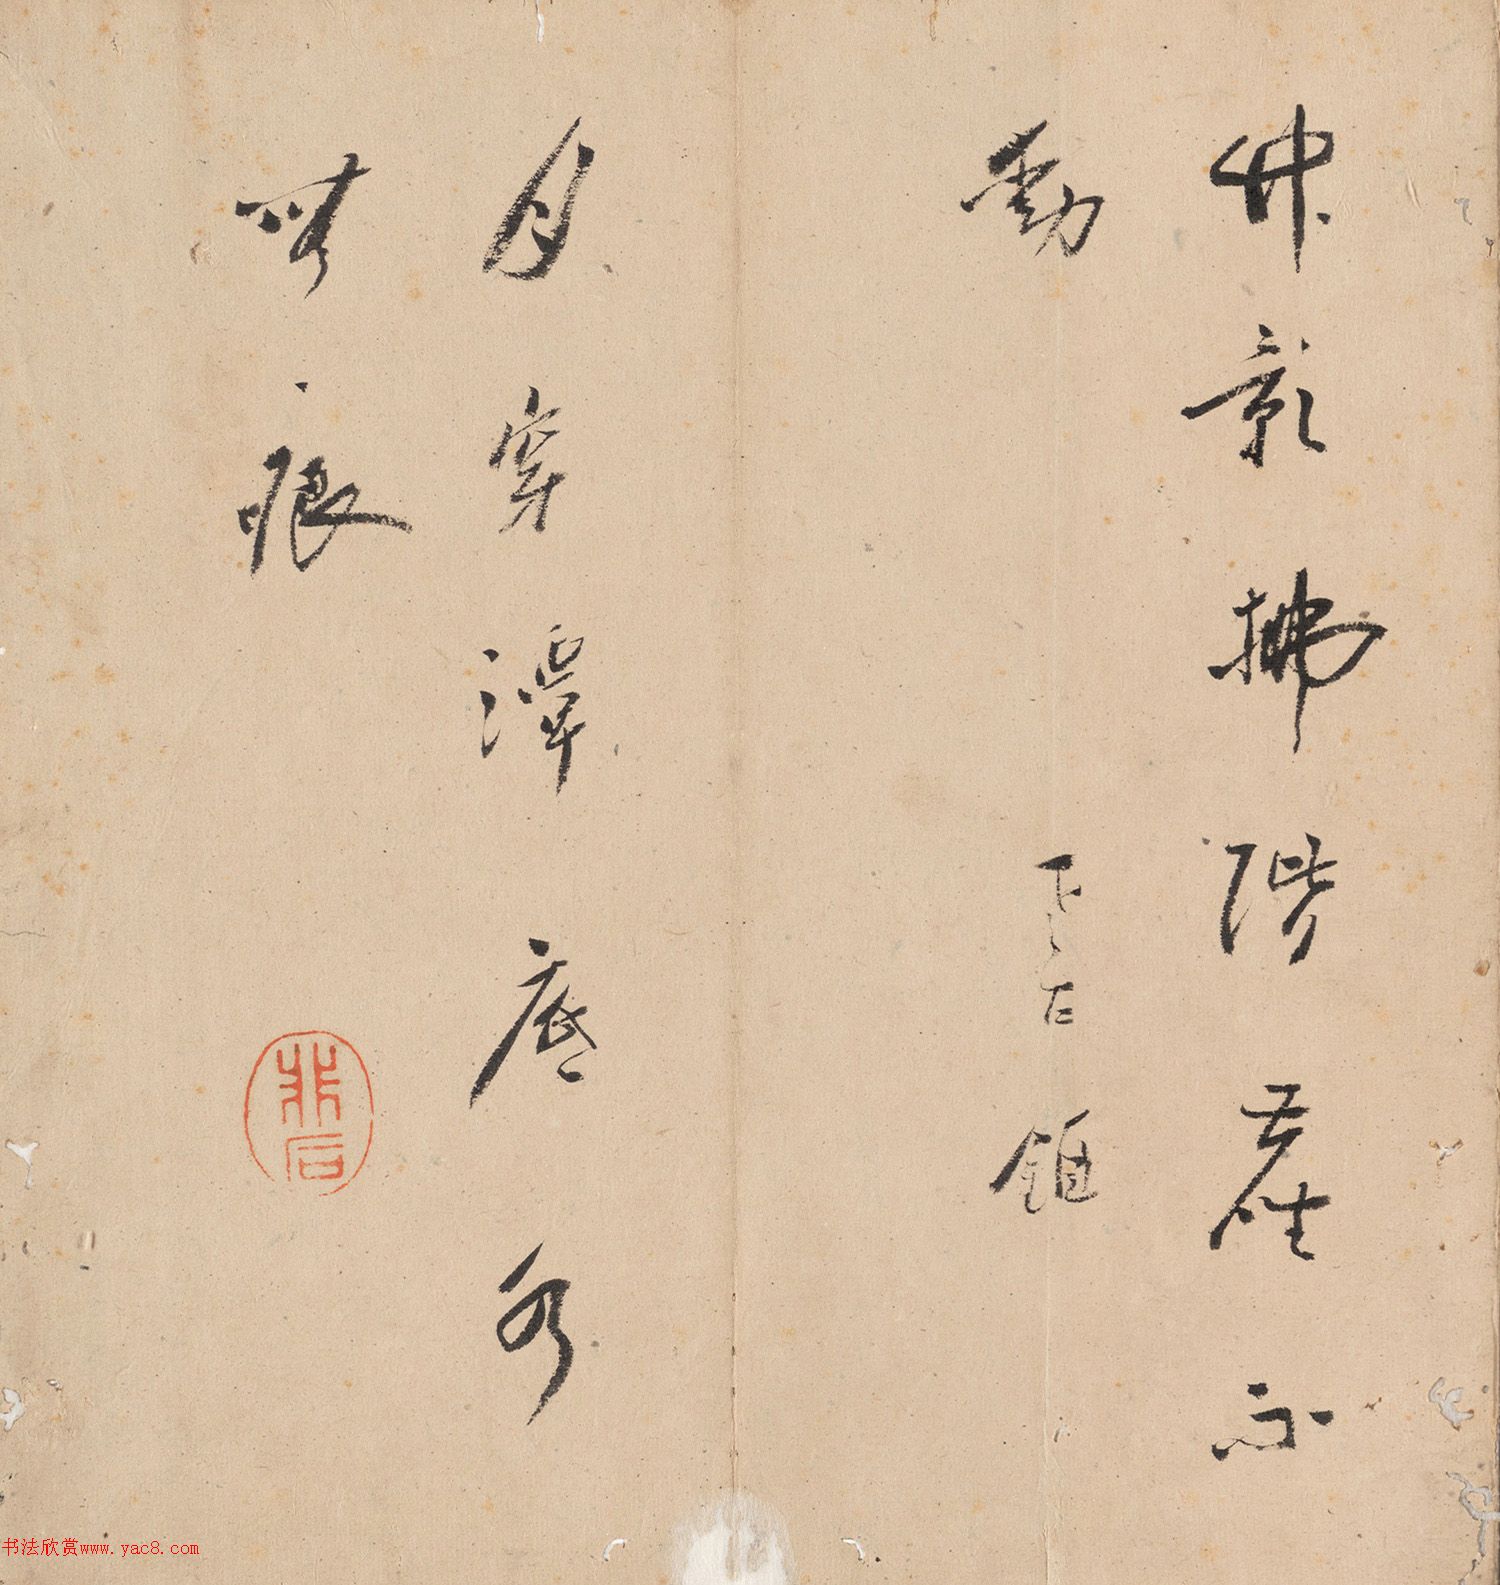 竹影拂階塵不
動
月穿潭底水
無痕
书法欣赏www.yac8.com